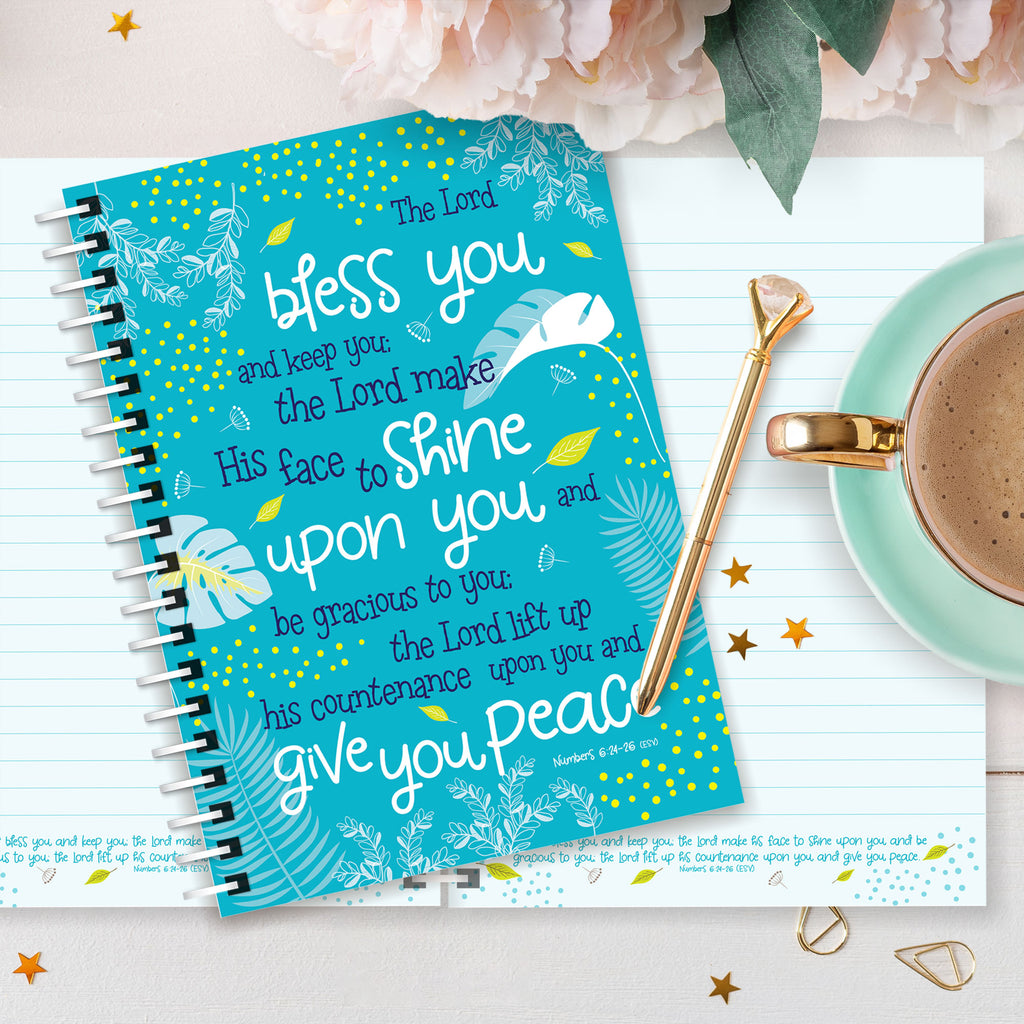 The Lord
bless you
and keep you;
the Lord make
His face to shine
upon you and
be gracious to you;
the Lord lift up
his countenance upon you and
give you peace
Numbers 6:24-26 (ESV)
bless you and keep you; the Lord make
to you; the Lord lift up his
Numbers 6:24-26 (ESV)
you and keep you; the Lord make his face to shine upon you and be
gracious to you; the Lord lift up his countenance upon you and give you peace.
Numbers 6:24-26 (ESV)